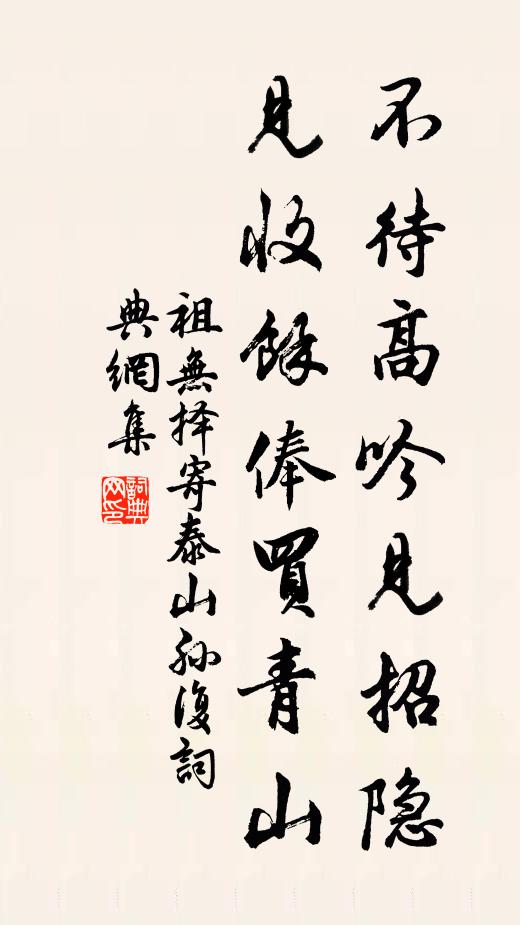 不待高吟見招隐
見收餘俸買青山
祖無择寄泰山孙復詞
典網集
詞典网印